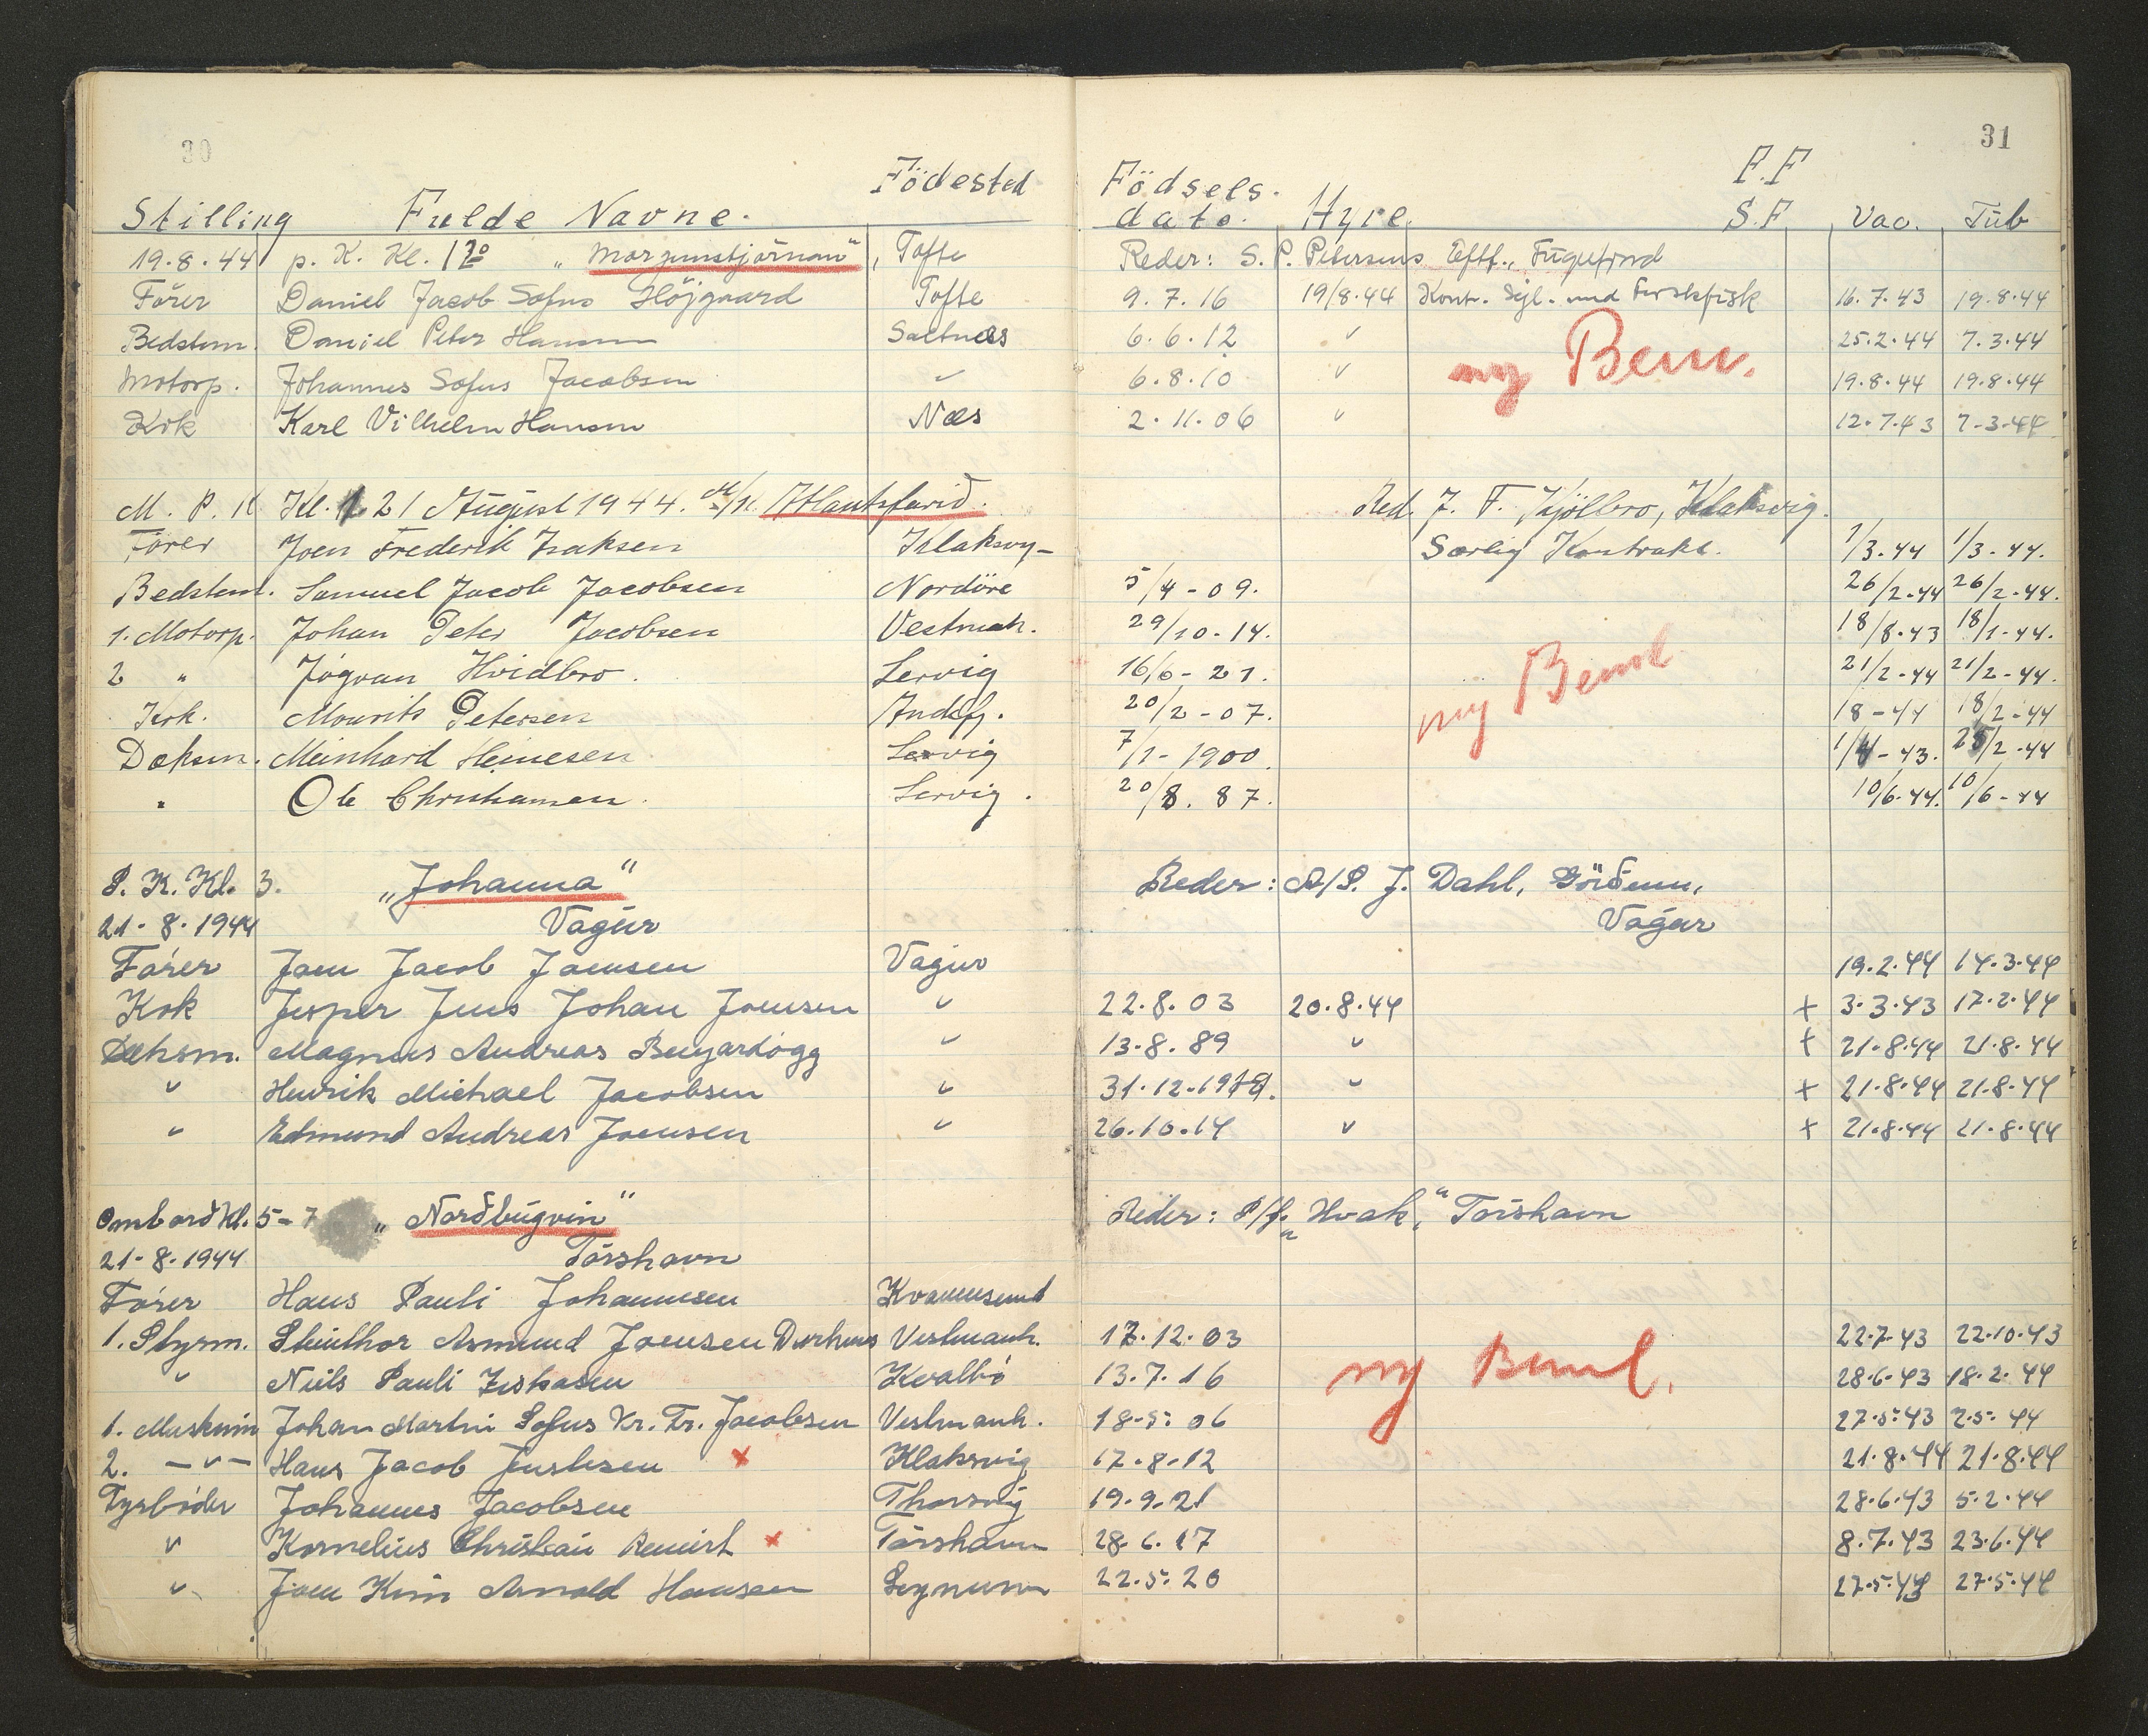 30
31
Stilling Fulde Navne. Födested Födsels. dato. Hyre. F.F S.F Vac. Tub
19.8.44 p. K. Kl. 17º „Morgunstjörnan“, Tofte Reder: S. P. Petersens Eftf., Fuglefjord
Förer Daniel Jacob Sofus Höjgaard Tofte 9.7.16 19/8.44 Kont. Sejl. med Ferskfisk 16.7.43 19.8.44
Bedstem. Daniel Peter Hansen Saltnæs 6.6.12 " 25.2.44 7.3.44
ny Bem.
Motorp. Johannes Sofus Jacobsen " 6.8.10 " 19.8.44 19.8.44
Kok Karl Vilhelm Hansen Næs 2.11.06 " 12.7.43 7-3-44
M. P. K Kl. 21 August 1944. M/K Atlantsfarið. Red. J. F. Kjölbro, Klaksvig.
Förer Joen Frederik Isaksen Klaksvg- Særlig Kontrakt. 1/3.44 1/3-44.
Bedstem. Samuel Jacob Jacobsen Nordöre 5/4-09. 26/2-44 26/2-44.
1. Motorp. Johan Peter Jacobsen Vestmah. 29/10-14. 18/8-43 18/1-44.
2 " Jógvan Hvidbro. Lervig 16/6-21. 21/2-44 21/2-44.
ny Beml
Kok. Mourits Petersen Andefj. 20/2-07. 18-44 18/2-44
Dæksm. Meinhard Heinesen Lervig 7/1-1900. 1/4-43. 25/2-44
" Ole Christiansen. Lervig. 20/8.87. 10/6-44. 10/6-44
P. K. Kl. 3. „Johanna“ Reder: A/S. J. Dahl, Görðum,
21-8.1944 Vágur Vágur
Förer Joen Jacob Joensen Vágur 19.2.44 14.3.44
Kok Jesper Jens Johan Joensen " 22.8.03 20.8.44 + 3.3.43 17.2.44
Dæksm. Magnus Andreas Bengardögg " 13.8.89 " + 21.8.44 21.8.44
" Henrik Michael Jacobsen " 31.12.1918. " + 21.8.44 21.8.44
" Edmund Andreas Joensen " 26.10.14 " + 21.8.44 21.8.44
Ombord Kl. 5-7 „Norðbúgvin“ Reder: P/f. „Hvak“, Tórshavn
21-8.1944 Tórshavn
Förer Hans Pauli Johannesen Kvannesund
1. Styrm. Steinthor Asmund Joensen Durhuus Vestmanh. 17.12.03 22.7.43 22.10.43
" Niels Pauli Isaksen Kvalbö 13.7.16 28.6.43 18.2.44
ny Beml.
1. Maskinm Johan Martin Sofus Kr. Fr. Jacobsen Vestmanh. 18.5.06 27.5.43 2.5.44
2. -"- Hans Jacob Justesen x Klaksvig 17.8.12 21.8.44 21.8.44
Fyrböder Johannes Jacobsen Thorsvig 19.9.21 28.6.43 5.2.44
" Kornelius Christian Reinert x Tórshavn 28.6.17 8.7.43 23.6.44
" Joen Kim Arnold Hansen 22.5.20 27.5.43 27.5.44